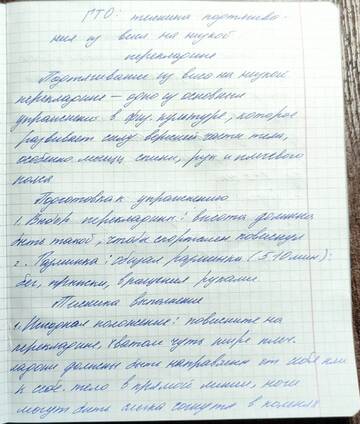 ГТО: техника подтягива-
ния из виса на низкой
перекладине
Подтягивание из виса на низкой
перекладине — одно из основных
упражнений в физ. культуре, которое
развивает силу верхней части тела,
особенно мышцы спины, рук и плечевого
пояса
Подготовка к упражнению
1. Выбор перекладины: высота должна
быть такой, чтобы спортсмен повиснул
2. Разминка: общая разминка (5-10 мин):
бег, прыжки, вращения руками
Техника выполнение
1. Исходная положение: повисните на
перекладине, хватом чуть шире плеч.
ладони должны быть направлены от себя или
к себе. тело в прямой линии, ноги
могут быть слегка согнуты в коленях